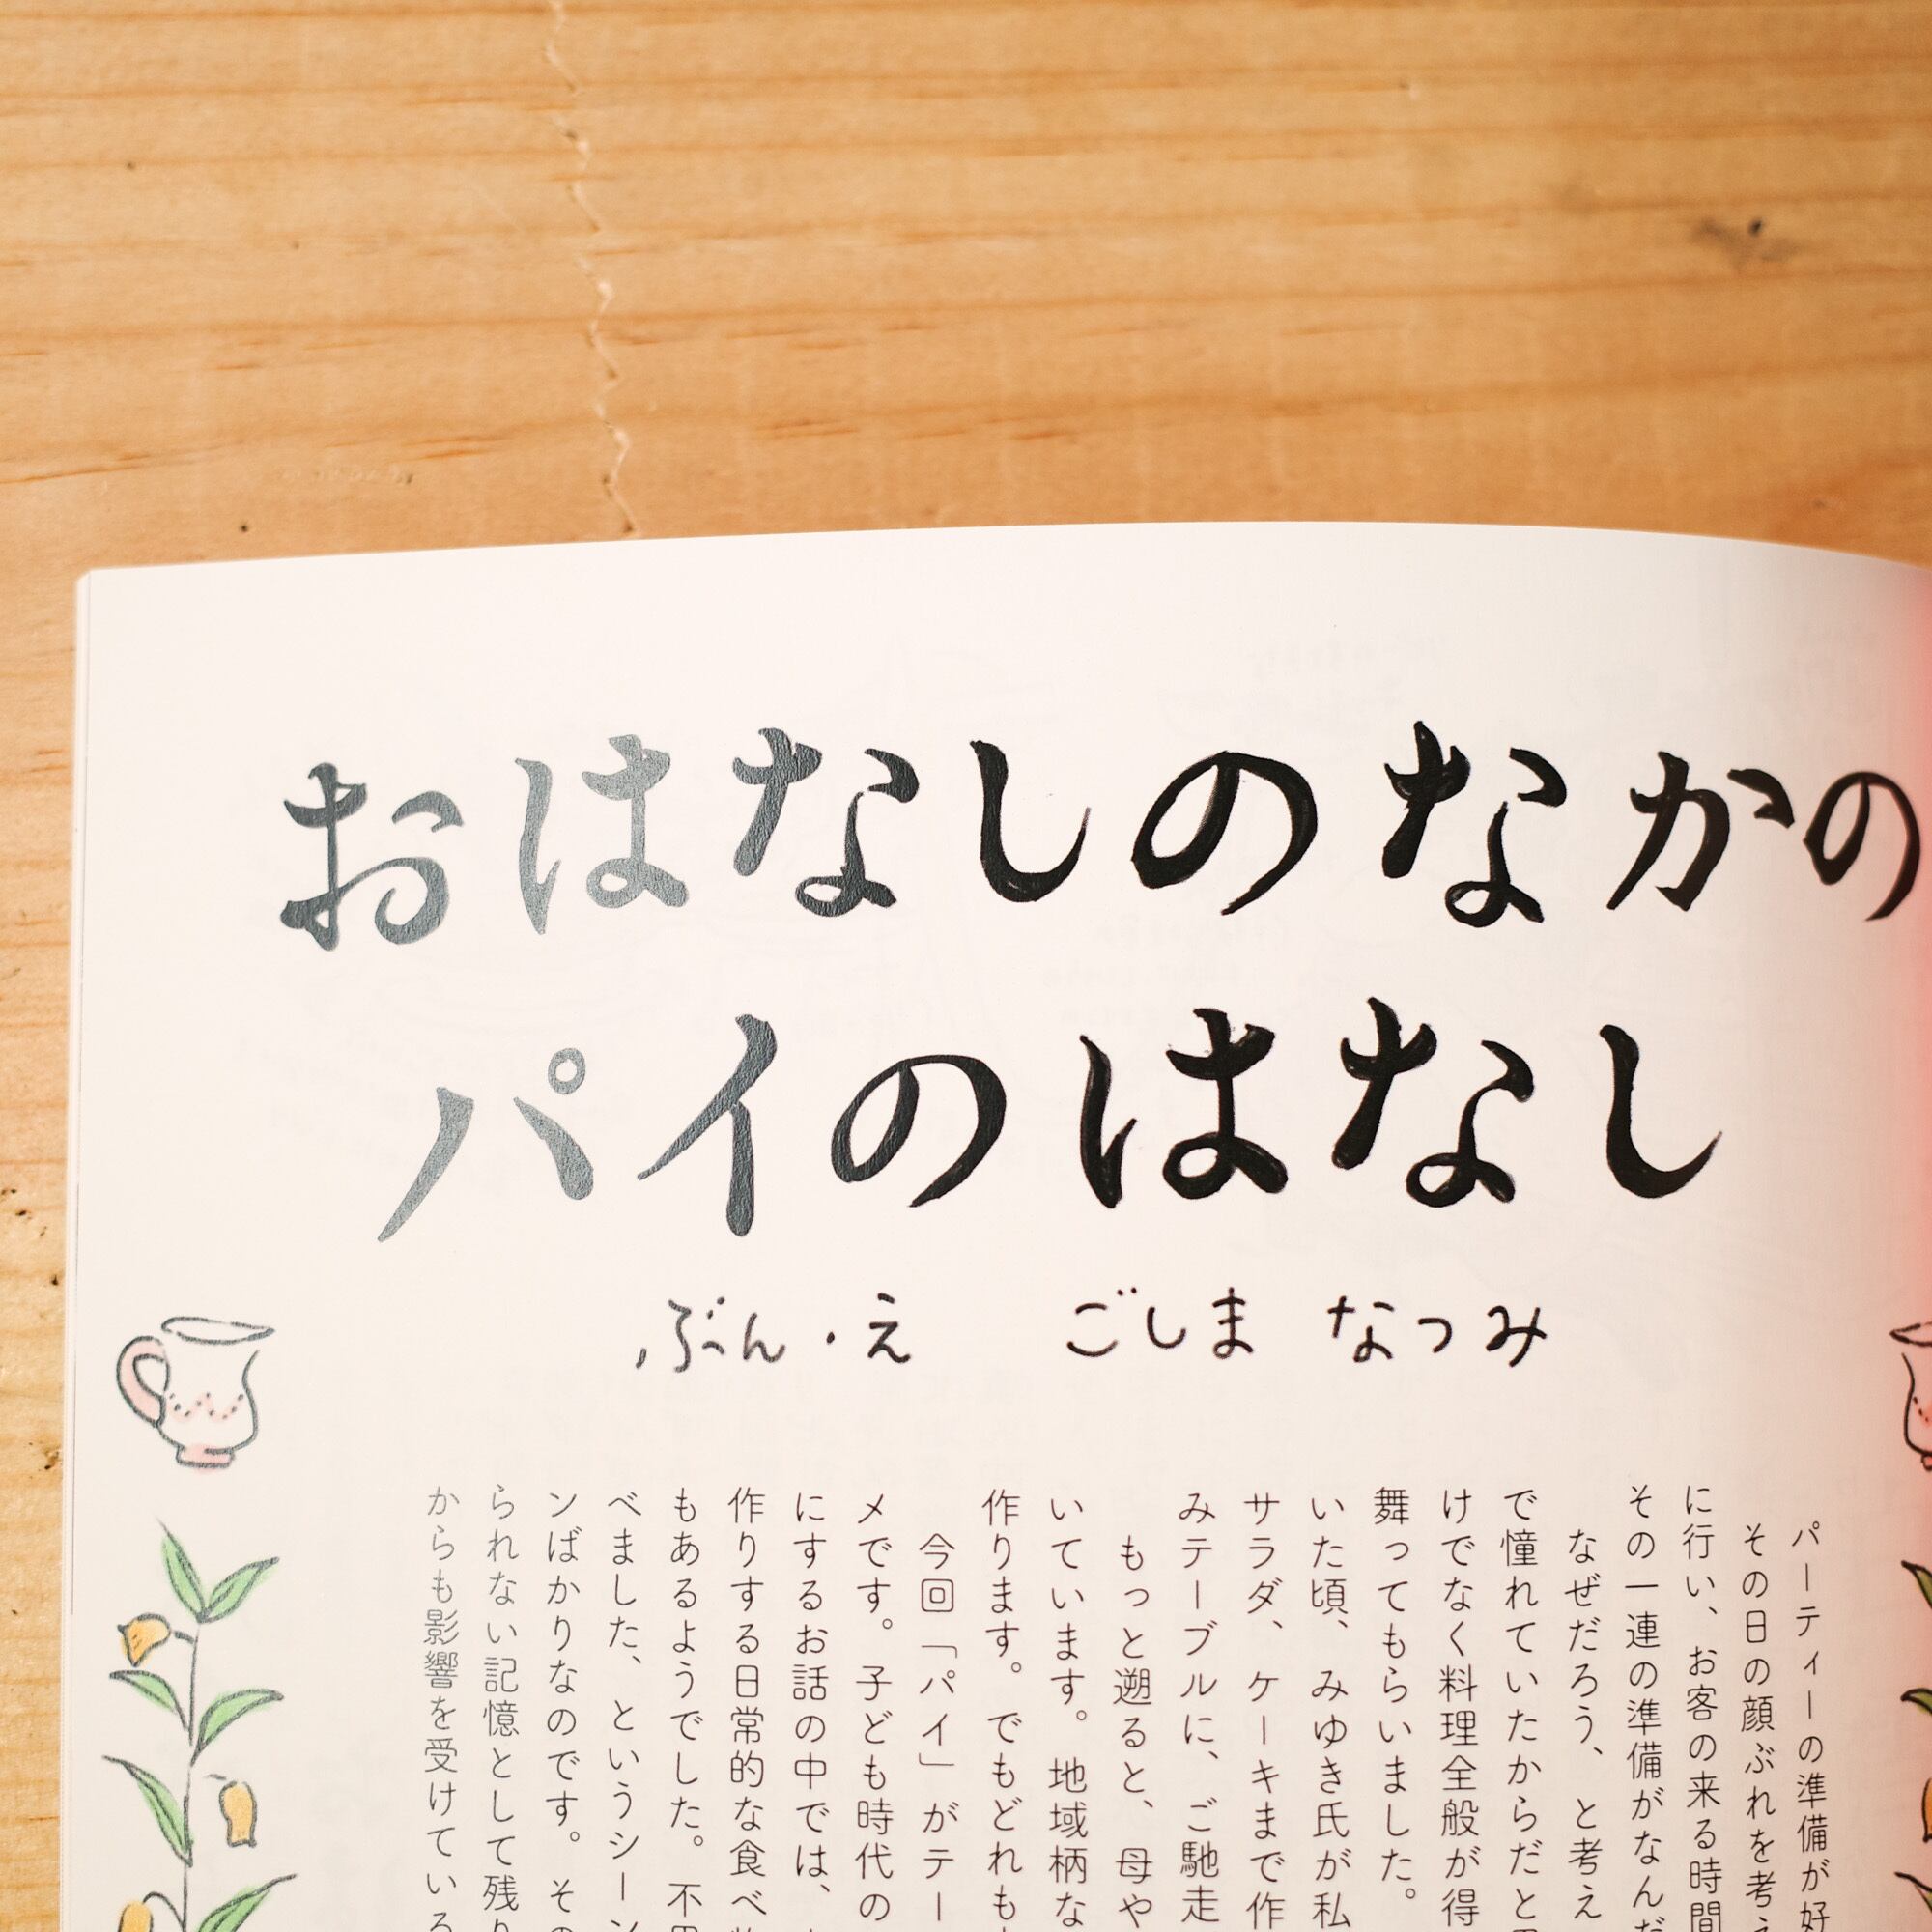 おはなしのなかの
パイのはなし
ぶん・え　ごしま　なつみ
パーティーの準備が好
その日の顔ぶれを考え
に行い、お客の来る時間
その一連の準備がなんだ
なぜだろう、と考え
で憧れていたからだと
けでなく料理全般が得
舞ってもらいました。
いた頃、みゆき氏が私
サラダ、ケーキまで作
みテーブルに、ご馳走
もっと遡ると、母や
いています。地域柄な
作ります。でもどれも
今回「パイ」がテー
メです。子ども時代の
にするお話の中では、
作りする日常的な食べ
もあるようでした。不
べました、というシーン
られない記憶として残り
ンばかりなのです。その
からも影響を受けている